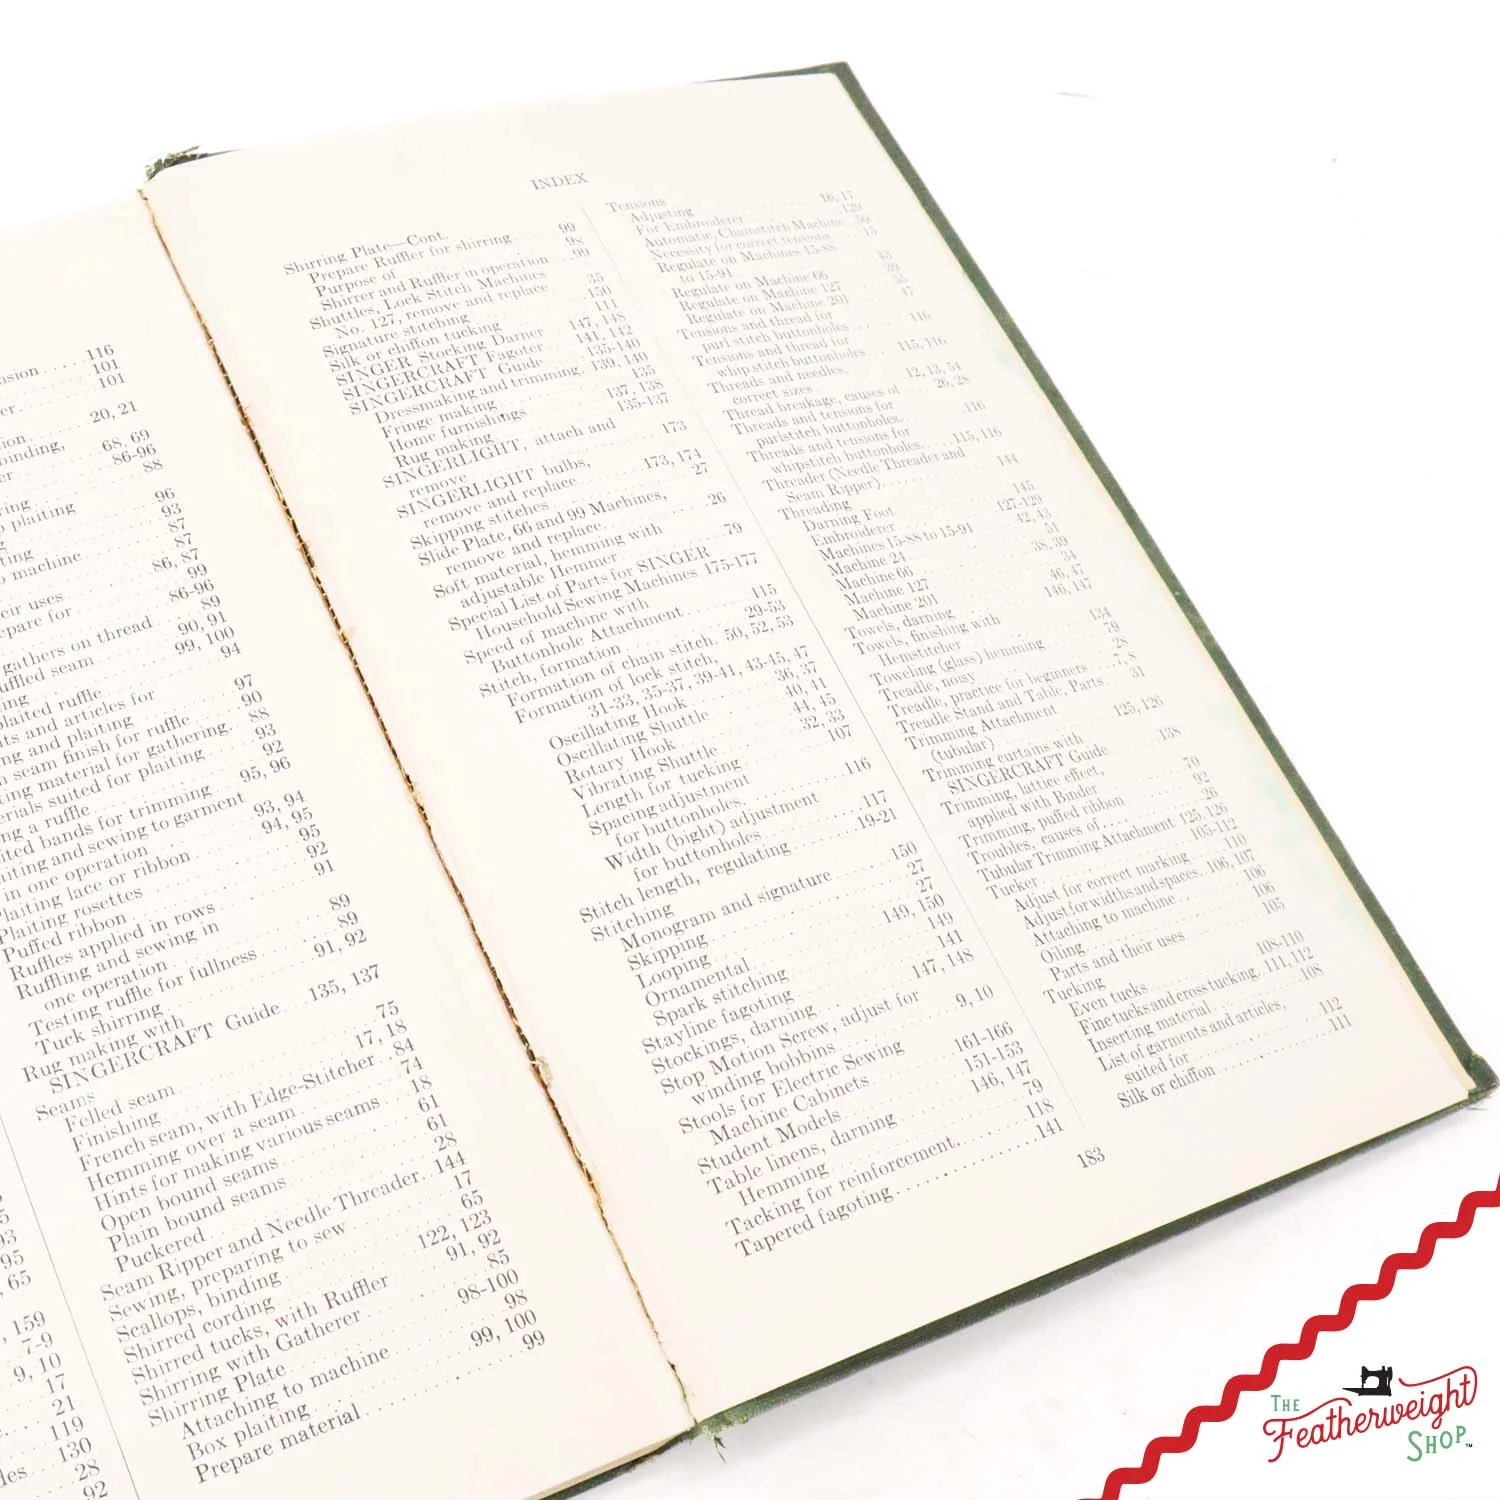 116
101
101
20, 21
68, 69
86-96
88
96
93
87
87
86, 87
99
86-96
89
gathers on thread 90, 91
99, 100
94
plaited ruffle
and articles for 97
ing and plaiting 90
seam finish for ruffle 88
material for gathering. 93
suited for plaiting 92
a ruffle 95, 96
bands for trimming
and sewing to garment 93, 94
in one operation 94, 95
Plaiting lace or ribbon 95
Plaiting rosettes 92
Puffed ribbon 91
Ruffles applied in rows
Ruffling and sewing in 89
one operation 89
Testing ruffle for fullness 91, 92
Tuck shirring
Rug making with
SINGERCRAFT Guide 135, 137
Seams
Felled seam 75
Finishing 17, 18
French seam, with Edge-Stitcher 84
Hemming over a seam 74
Hints for making various seams 18
Open bound seams 61
Plain bound seams 61
Puckered 28
Seam Ripper and Needle Threader 144
Sewing, preparing to sew 17
Scallops, binding 65
Shirred cording 122, 123
Shirred tucks, with Ruffler 91, 92
Shirring with Gatherer 85
Shirring Plate 98-100
Attaching to machine 98
Box plaiting 99, 100
Prepare material 99
159
7-9
9, 10
17
21
119
130
28
92
INDEX
Shirring Plate—Cont.
Prepare Ruffler for shirring 99
Purpose of 98
Shirrer and Ruffler in operation 99
Shuttles, Lock Stitch Machines
No. 127, remove and replace 35
Signature stitching 150
Silk or chiffon tucking 111
SINGER Stocking Darner 147, 148
SINGERCRAFT Fagoter 141, 142
SINGERCRAFT Guide 135-140
Dressmaking and trimming 139, 140
Fringe making 135
Home furnishings 137, 138
Rug making 135-137
SINGERLIGHT, attach and
remove 173
SINGERLIGHT bulbs,
remove and replace 173, 174
Skipping stitches 27
Slide Plate, 66 and 99 Machines,
remove and replace 26
Soft material, hemming with
adjustable Hemmer 79
Special List of Parts for SINGER
Household Sewing Machines 175-177
Speed of machine with
Buttonhole Attachment 115
Stitch, formation 29-53
Formation of chain stitch. 50, 52, 53
Formation of lock stitch,
31-33, 35-37, 39-41, 43-45, 47
Oscillating Hook 36, 37
Oscillating Shuttle 40, 41
Rotary Hook 44, 45
Vibrating Shuttle 32, 33
Length for tucking 107
Spacing adjustment
for buttonholes. 116
Width (bight) adjustment
for buttonholes 117
Stitch length, regulating 19-21
Stitching
Monogram and signature 150
Skipping 27
Looping 27
Ornamental 149, 150
Spark stitching 149
Stayline fagoting 141
Stockings, darning 147, 148
Stop Motion Screw, adjust for
winding bobbins 9, 10
Stools for Electric Sewing
Machine Cabinets 161-166
Student Models 151-153
Table linens, darning 146, 147
Hemming 79
Tacking for reinforcement 118
Tapered fagoting 141
Tensions
Adjusting 16, 17
For Embroiderer 129
Automatic, Chainstitch Machine 50
Necessity for correct tensions 15
Regulate on Machines 15-88
to 15-91 43
Regulate on Machine 66 39
Regulate on Machine 127 35
Regulate on Machine 201 47
Tensions and thread for
purl stitch buttonholes 116
Tensions and thread for
whip stitch buttonholes 115, 116
Threads and needles,
correct sizes 12, 13, 54
Thread breakage, causes of 26, 28
Threads and tensions for
purlstitch buttonholes. 116
Threads and tensions for
whipstitch buttonholes. 115, 116
Threader (Needle Threader and
Seam Ripper) 144
Threading
Darning Foot 145
Embroiderer 127-129
Machines 15-88 to 15-91 42, 43
Machine 24 51
Machine 66 38, 39
Machine 127 34
Machine 201 46, 47
Towels, darning 146, 147
Towels, finishing with
Hemstitcher 134
Toweling (glass) hemming 79
Treadle, noisy 28
Treadle, practice for beginners 7, 8
Treadle Stand and Table, Parts 31
Trimming Attachment
(tubular) 125, 126
Trimming curtains with
SINGERCRAFT Guide 138
Trimming, lattice effect,
applied with Binder 70
Trimming, puffed ribbon 92
Troubles, causes of 26
Tubular Trimming Attachment 125, 126
Tucker 105-112
Adjust for correct marking 110
Adjust for widths and spaces 106, 107
Attaching to machine 106
Oiling 106
Parts and their uses 105
Tucking
Even tucks 108-110
Fine tucks and cross tucking 111, 112
Inserting material 108
List of garments and articles,
suited for 112
Silk or chiffon 111
183
THE
Featherweight
SHOP™